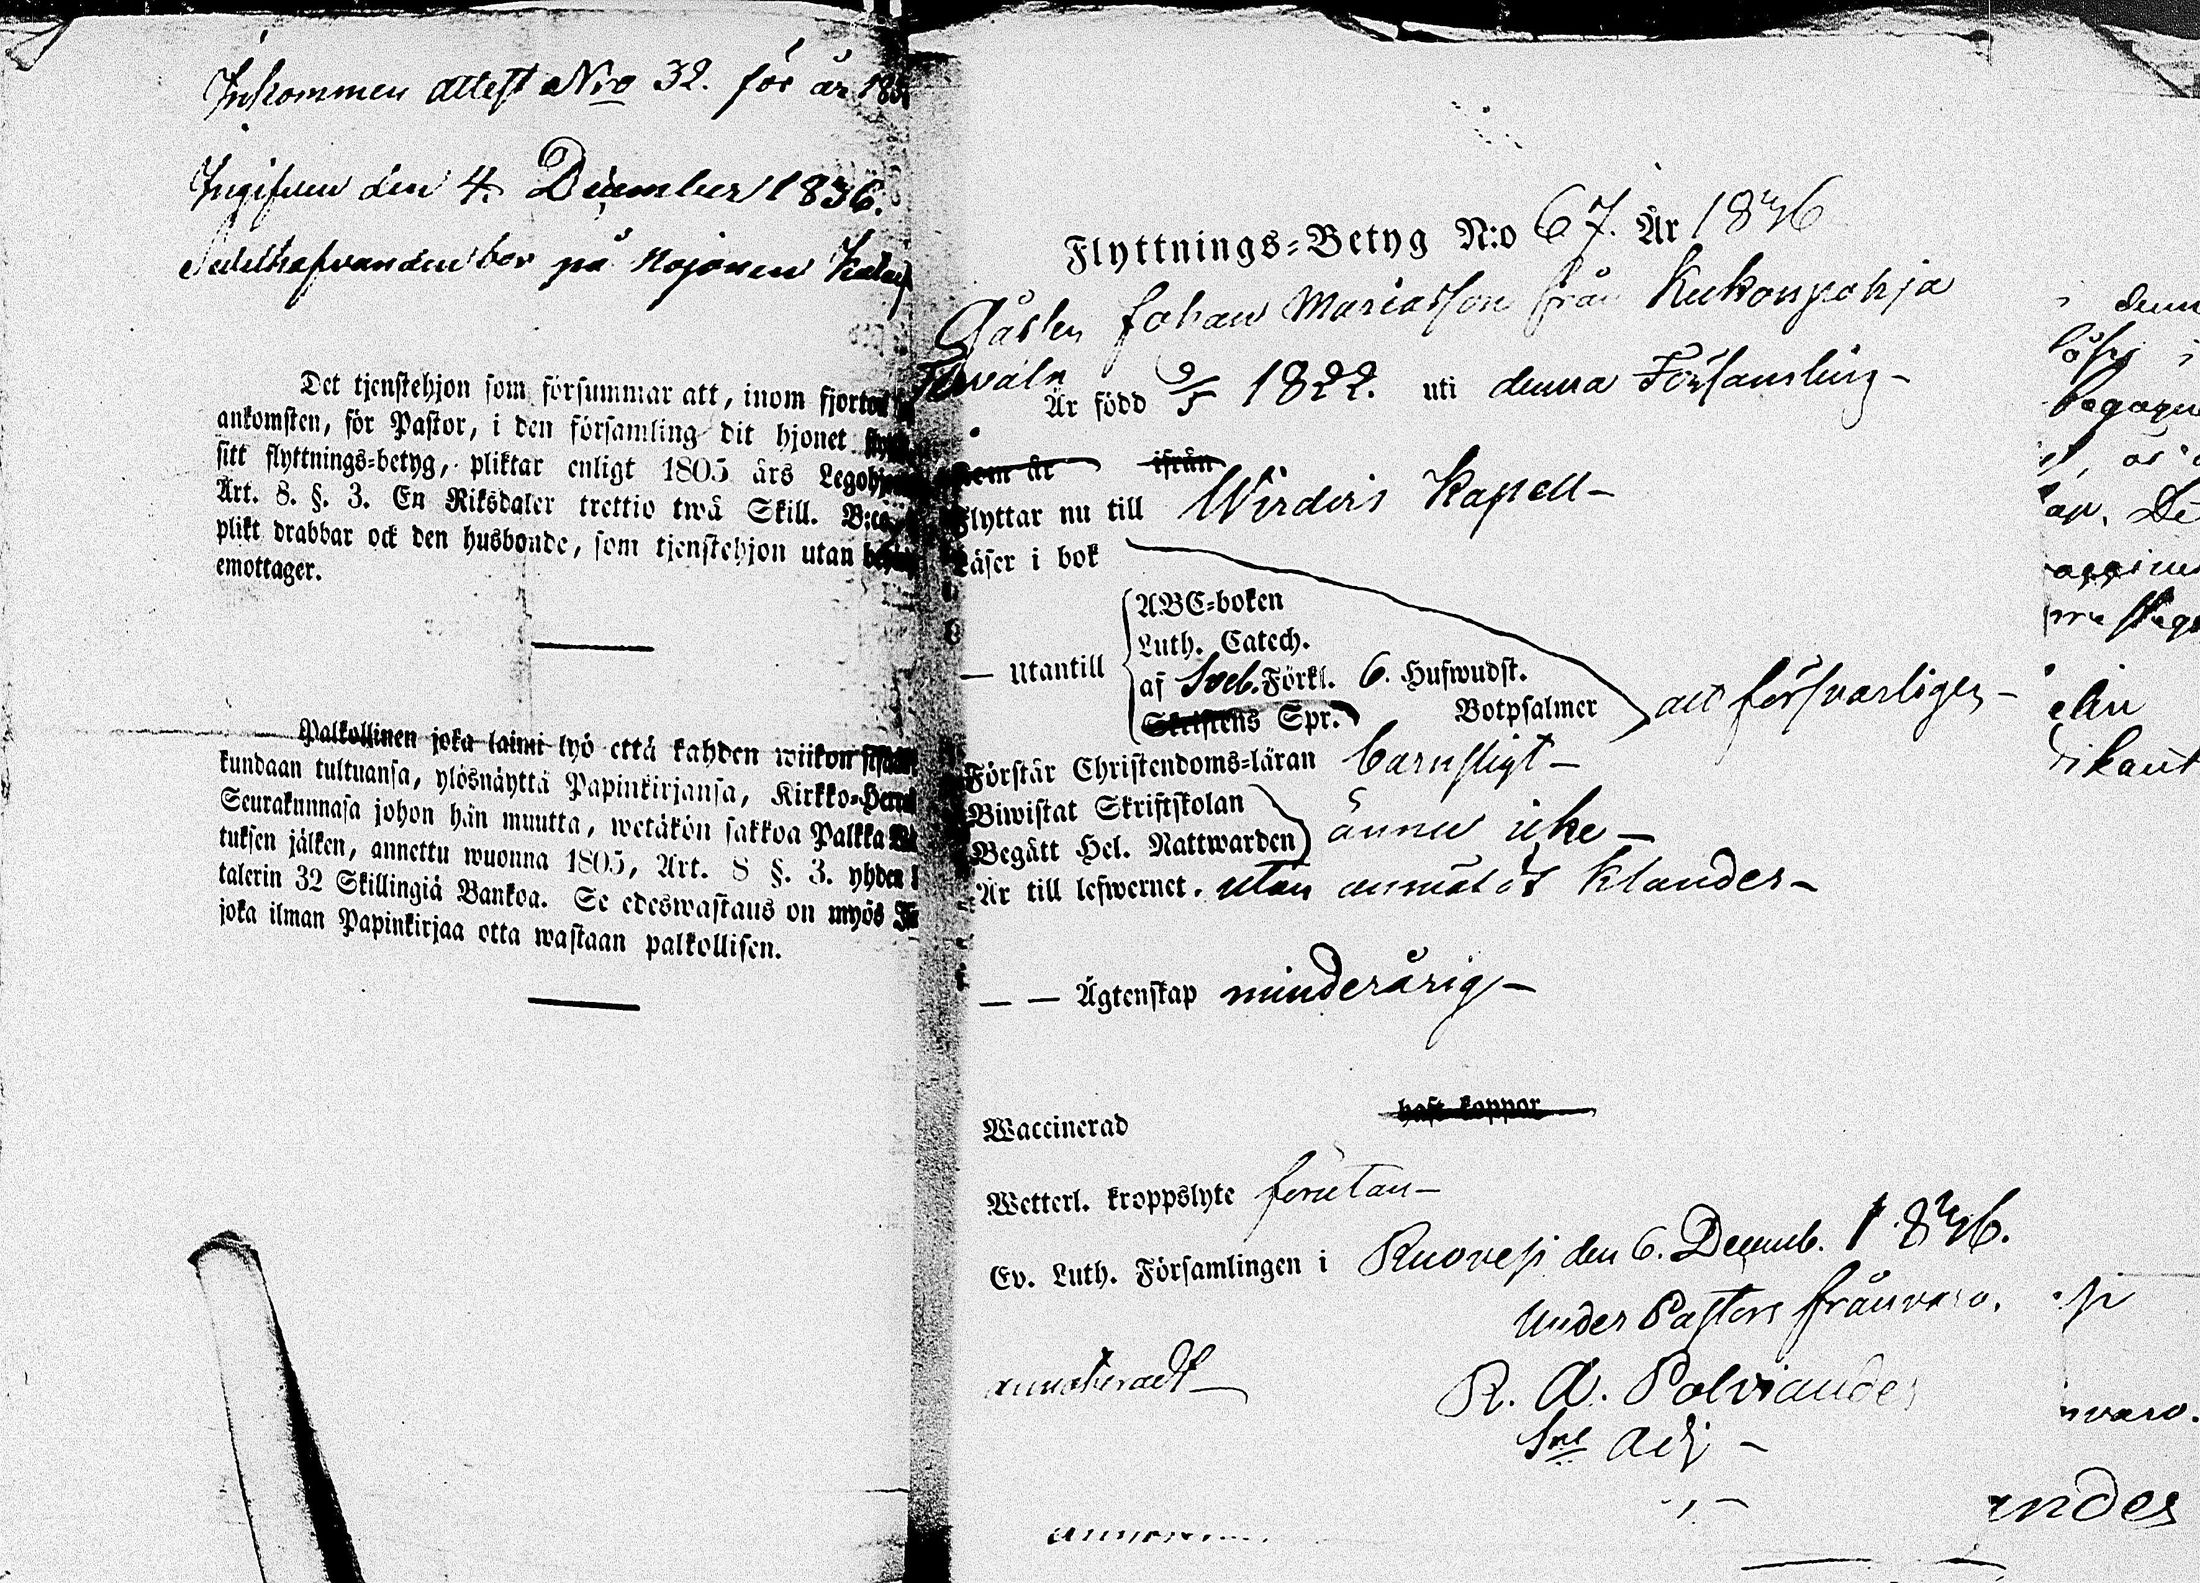 Inkommen attest Nro 32. för år 183
Ingifven den 4. December 1836.
bor på
Det tjenstehjon som försummar att, inom fjorton
ankomsten, för Pastor, i den församling dit hjonet
sitt flyttnings=betyg, pliktar enligt 1805 års Legohj
Art. 8. §. 3. En Riksdaler trettio twå Skill. B:co
plikt drabbar ock den husbonde, som tjenstehjon utan
emottager.
Palkollinen joka laimi lyö että kahden wiikon sisä
kundaan tultuansa, ylösnäyttä Papinkirjansa, Kirkko=Herra
Seurakunnasa johon hän muutta, wetäkön sakkoa Palkka
tuksen jälken, annettu wuonna 1805, Art. 8 §. 3. yhden
talerin 32 Skillingiä Bankoa. Se edeswastaus on myös
joka ilman Papinkirjaa otta wastaan palkollisen.
Flyttnings=Betyg N:o 67. År 1836
Johan Mariasson från Kukonpohja
Är född 9/5 1822. uti denna Församling –
Som är ifrån
Flyttar nu till Wirdois Kapell –
Läser i bok
ABC=boken
Luth. Catech.
— utantill af Sveb. Förkl. 6. Hufwudst.
Skriftens Spr. Botpsalmer
allt försvarligen –
Förstår Christendoms=läran barnsligt –
Biwistat Skriftskolan
Begått Hel. Nattwarden ännu icke –
Är till lefwernet. utan anmäldt klander –
— — Ägtenskap minderårig –
Waccinerad haft koppor
Wetterl. kroppslyte förutan –
Ev. Luth. Församlingen i Ruovesi den 6. Decemb. 1836.
Under Pastors frånvaro.
R. A. Polviander
Adj –